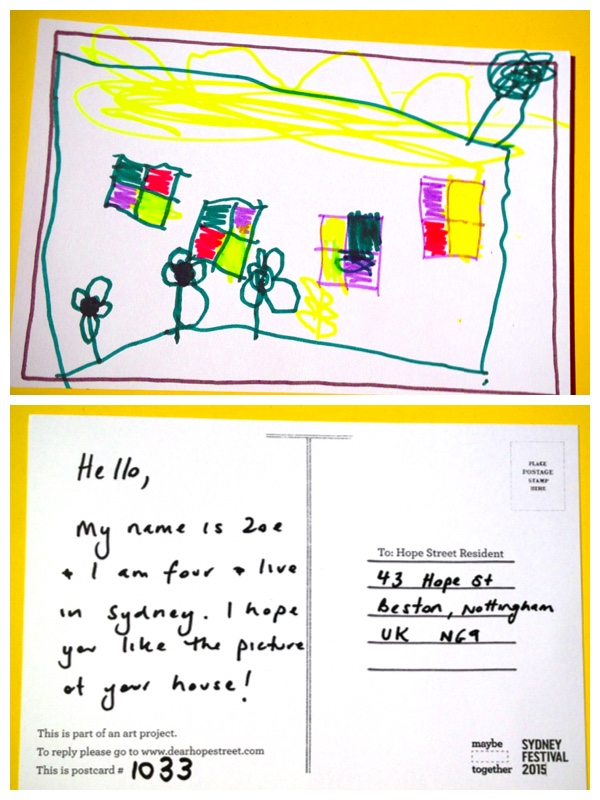 Hello,
My name is Zoe
+ I am four + live
in Sydney. I hope
you like the picture
of your house!
This is part of an art project.
To reply please go to www.dearhopestreet.com
This is postcard # 1033
PLACE
POSTAGE
STAMP
HERE
To: Hope Street Resident
43 Hope St
Beston, Nottingham
UK NG9
maybe
together
SYDNEY
FESTIVAL
2015